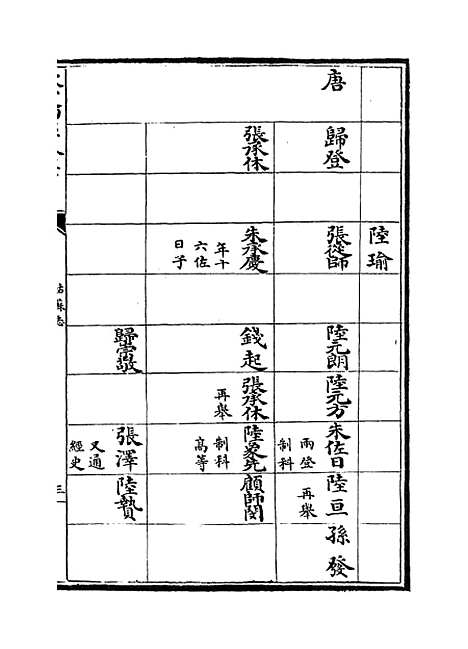 陸瑜
唐
歸登
張從師
陸元朗
陸元方
朱佐日
兩登
制科
陸亘
再舉
孫發
張承休
朱承慶
年十
六佐
日子
錢起
張承休
再舉
陸象先
制科
高等
顧師閔
歸崇敬
張澤
又通
經史
陸贄
姑蘇志
三